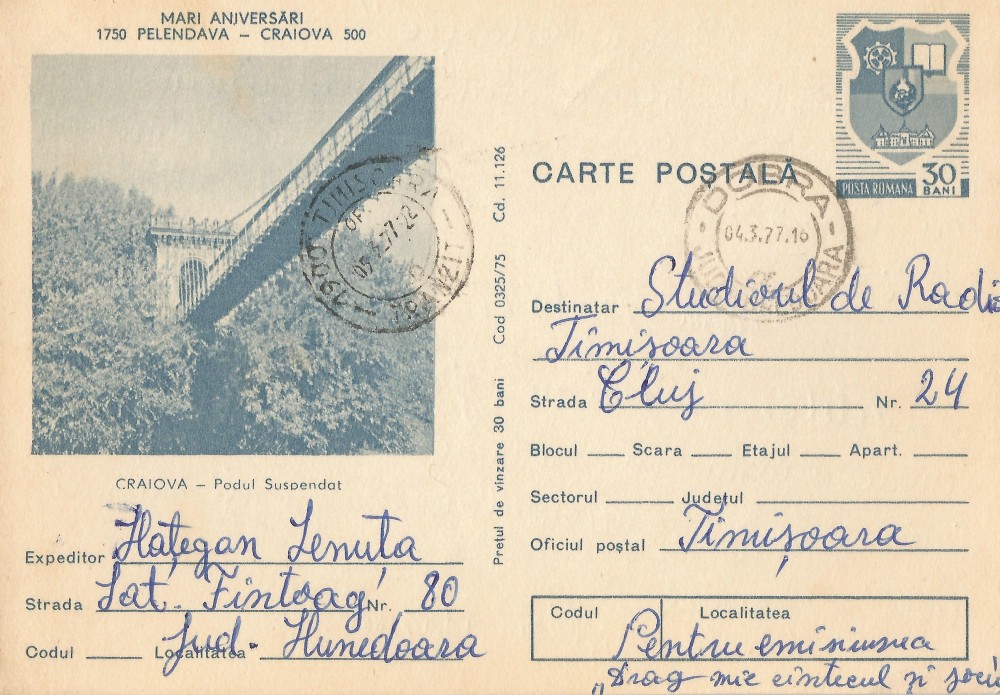 MARI ANIVERSĂRI
1750 PELENDAVA – CRAIOVA 500
CRAIOVA – Podul Suspendat
Expeditor Hațegan Lenuța
Strada Sat. Fintoag Nr. 80
Codul Localitatea Jud. Hunedoara
Prețul de vînzare 30 bani Cod 0325/75 Cd. 11.126
1900 TIMIȘOARA
TRANZIT
30
BANI
POSTA ROMANA
CARTE POȘTALĂ
DOBRA
04.3.77.16
Destinatar Studioul de Radi
Timișoara
Strada Cluj Nr. 24
Blocul Scara Etajul Apart.
Sectorul Județul
Oficiul poștal Timișoara
Codul Localitatea
Pentru emisiunea
„Drag mie cintecul si jocu